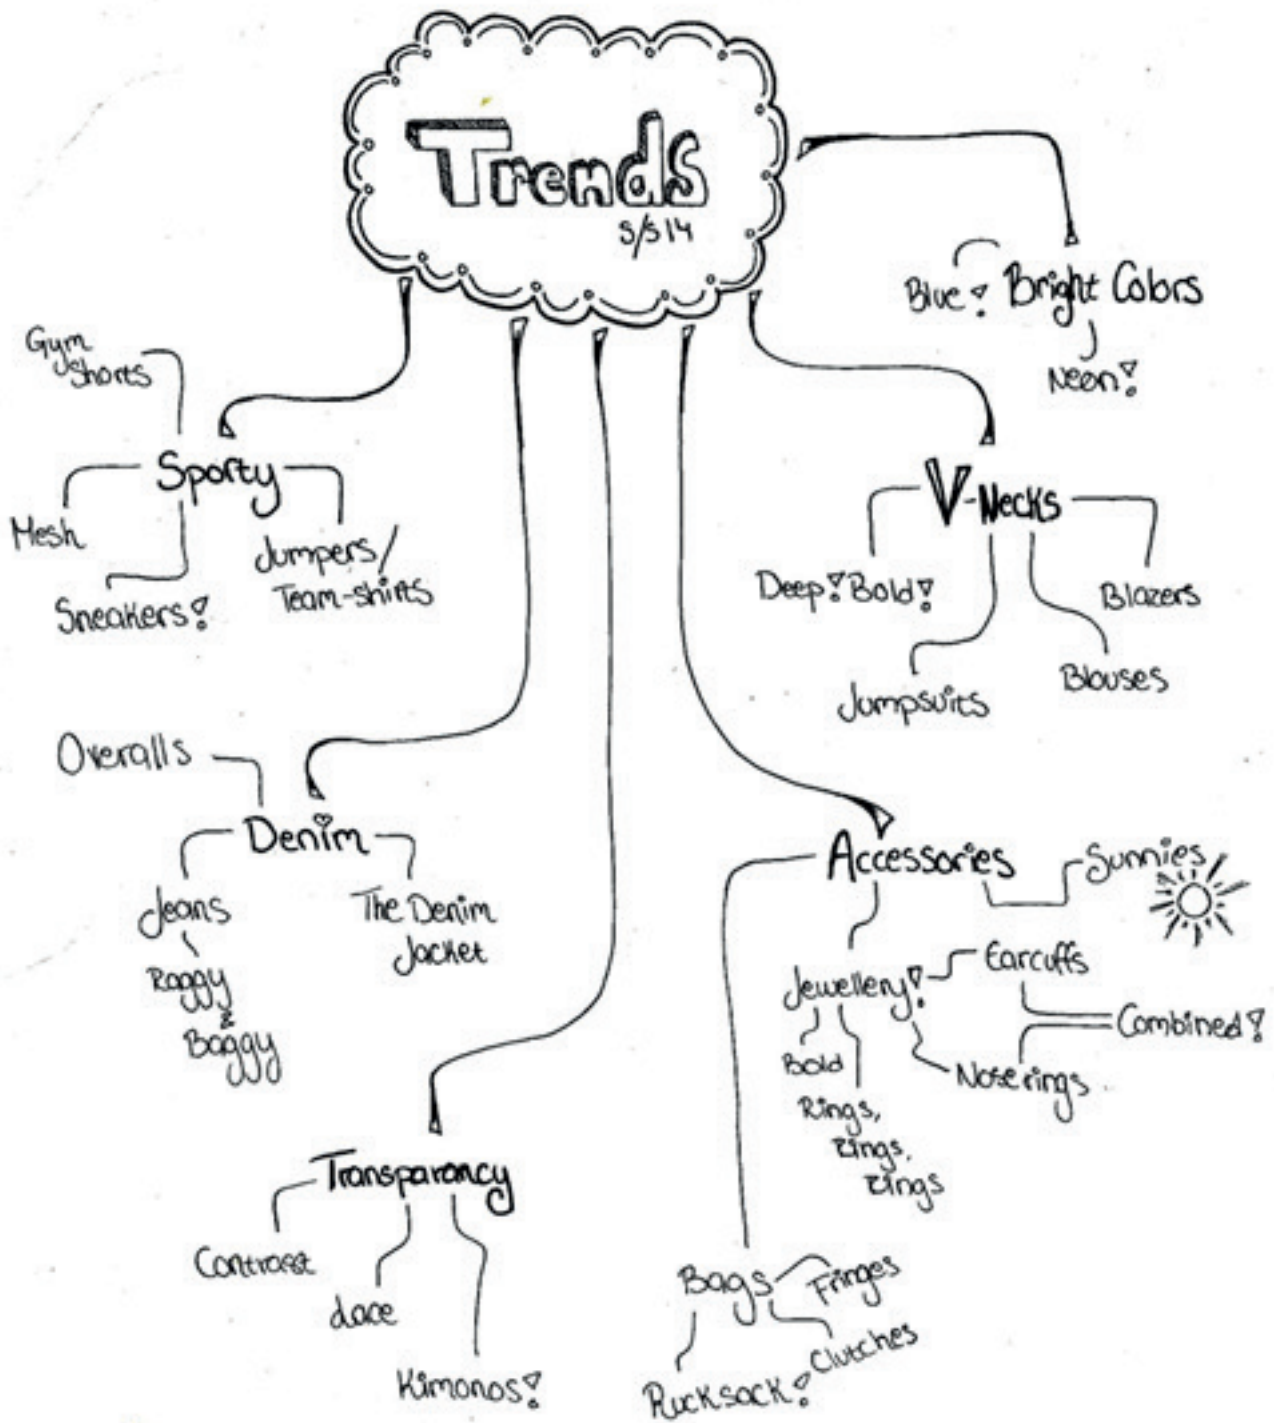 Trends
S/S 14
Blue!
Bright Colors
Neon!
Gym
Shorts
Sporty
Mesh
Sneakers!
Jumpers/
Team-shirts
V-Necks
Deep! Bold!
Blazers
Jumpsuits
Blouses
Overalls
Denim
Jeans
Raggy
Baggy
The Denim
Jacket
Accessories
Sunnies
Jewellery!
Earcuffs
Combined!
Bold
Noserings
Rings,
Rings,
Rings
Transparancy
Contrast
Lace
Kimonos!
Bags
Fringes
Clutches
Rucksack!